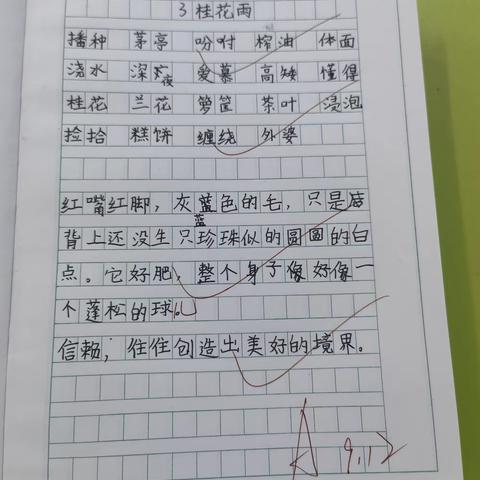 3 桂花雨
播种 茅亭 吩咐 榨油 体面
浇水 深夜 爱慕 高矮 懂得
桂花 兰花 箩筐 茶叶 浸泡
捡拾 糕饼 缠绕 外婆
红嘴红脚，灰蓝色的毛，只是后
蓝
背上还没生只珍珠似的圆圆的白
点。它好肥，整个身子像好像一
个蓬松的球儿。
信赖，往往创造出美好的境界。
A 9.12